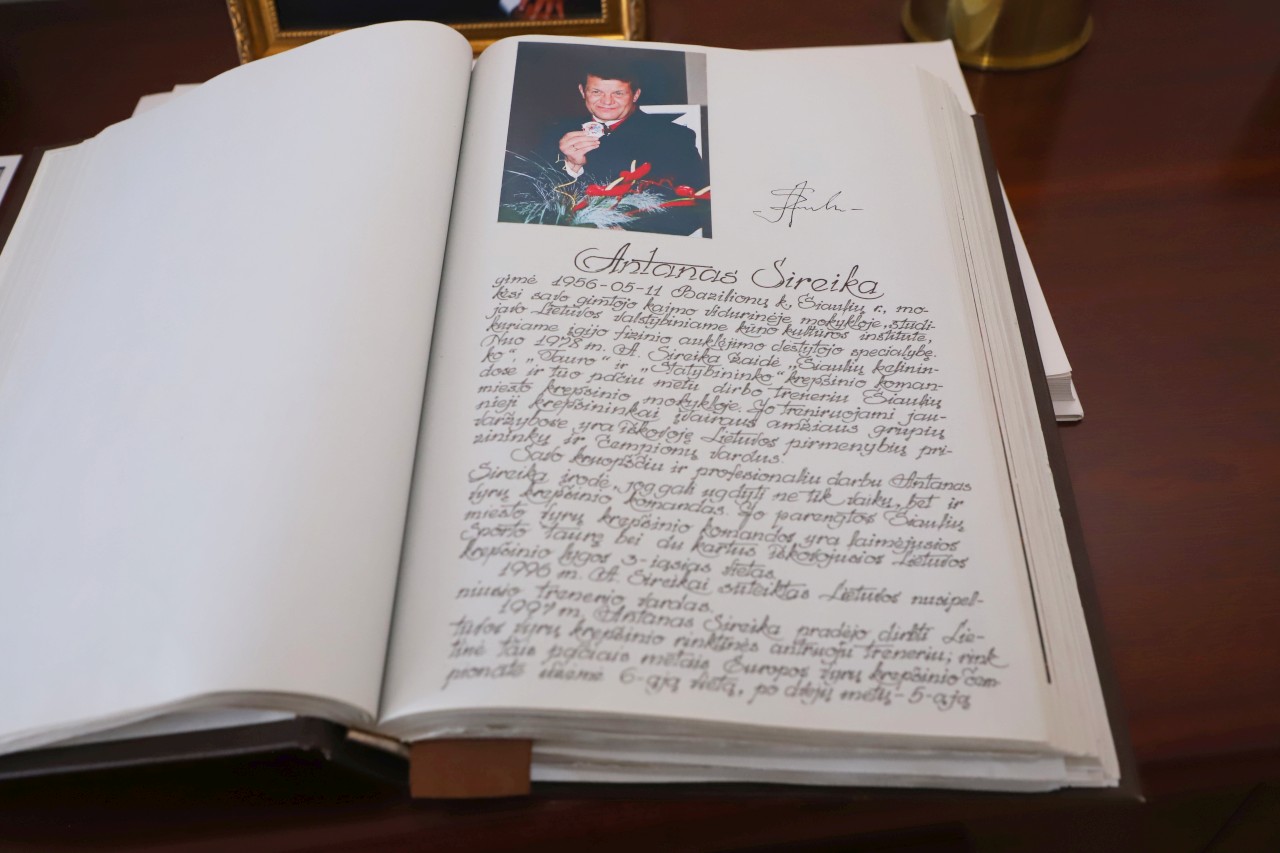 Antanas Sireika
gimė 1956-05-11 Bazilionų k., Šiaulių r., mo-
kėsi savo gimtojo kaimo vidurinėje mokykloje, studi-
javo Lietuvos valstybiniame kūno kultūros institute,
kuriame įgijo fizinio auklėjimo dėstytojo specialybę.
Nuo 1978 m. A. Sireika žaidė „Šiaulių kelinin-
ko“, „Tauro“ ir „Statybininko“ krepšinio koman-
dose ir tuo pačiu metu dirbo treneriu Šiaulių
miesto krepšinio mokykloje. Jo treniruojami jau-
nieji krepšininkai įvairaus amžiaus grupių
varžybose yra iškovoję Lietuvos pirmenybių pri-
zininkų ir čempionų vardus.
Savo kruopščiu ir profesionaliu darbu Antanas
Sireika įrodė, jog gali ugdyti ne tik vaikų, bet ir
vyrų krepšinio komandas. Jo parengtos Šiaulių
miesto vyrų krepšinio komandos yra laimėjusios
Sporto taurę bei du kartus iškovojusios Lietuvos
krepšinio lygos 3-iąsias vietas.
1996 m. A. Sireikai suteiktas Lietuvos nusipel-
niusio trenerio vardas.
1997 m. Antanas Sireika pradėjo dirbti Lie-
tuvos vyrų krepšinio rinktinės antruoju treneriu; rink
tinė tais pačiais metais Europos vyrų krepšinio čem-
pionate užėmė 6-ąją vietą, po dvejų metų - 5-ąją